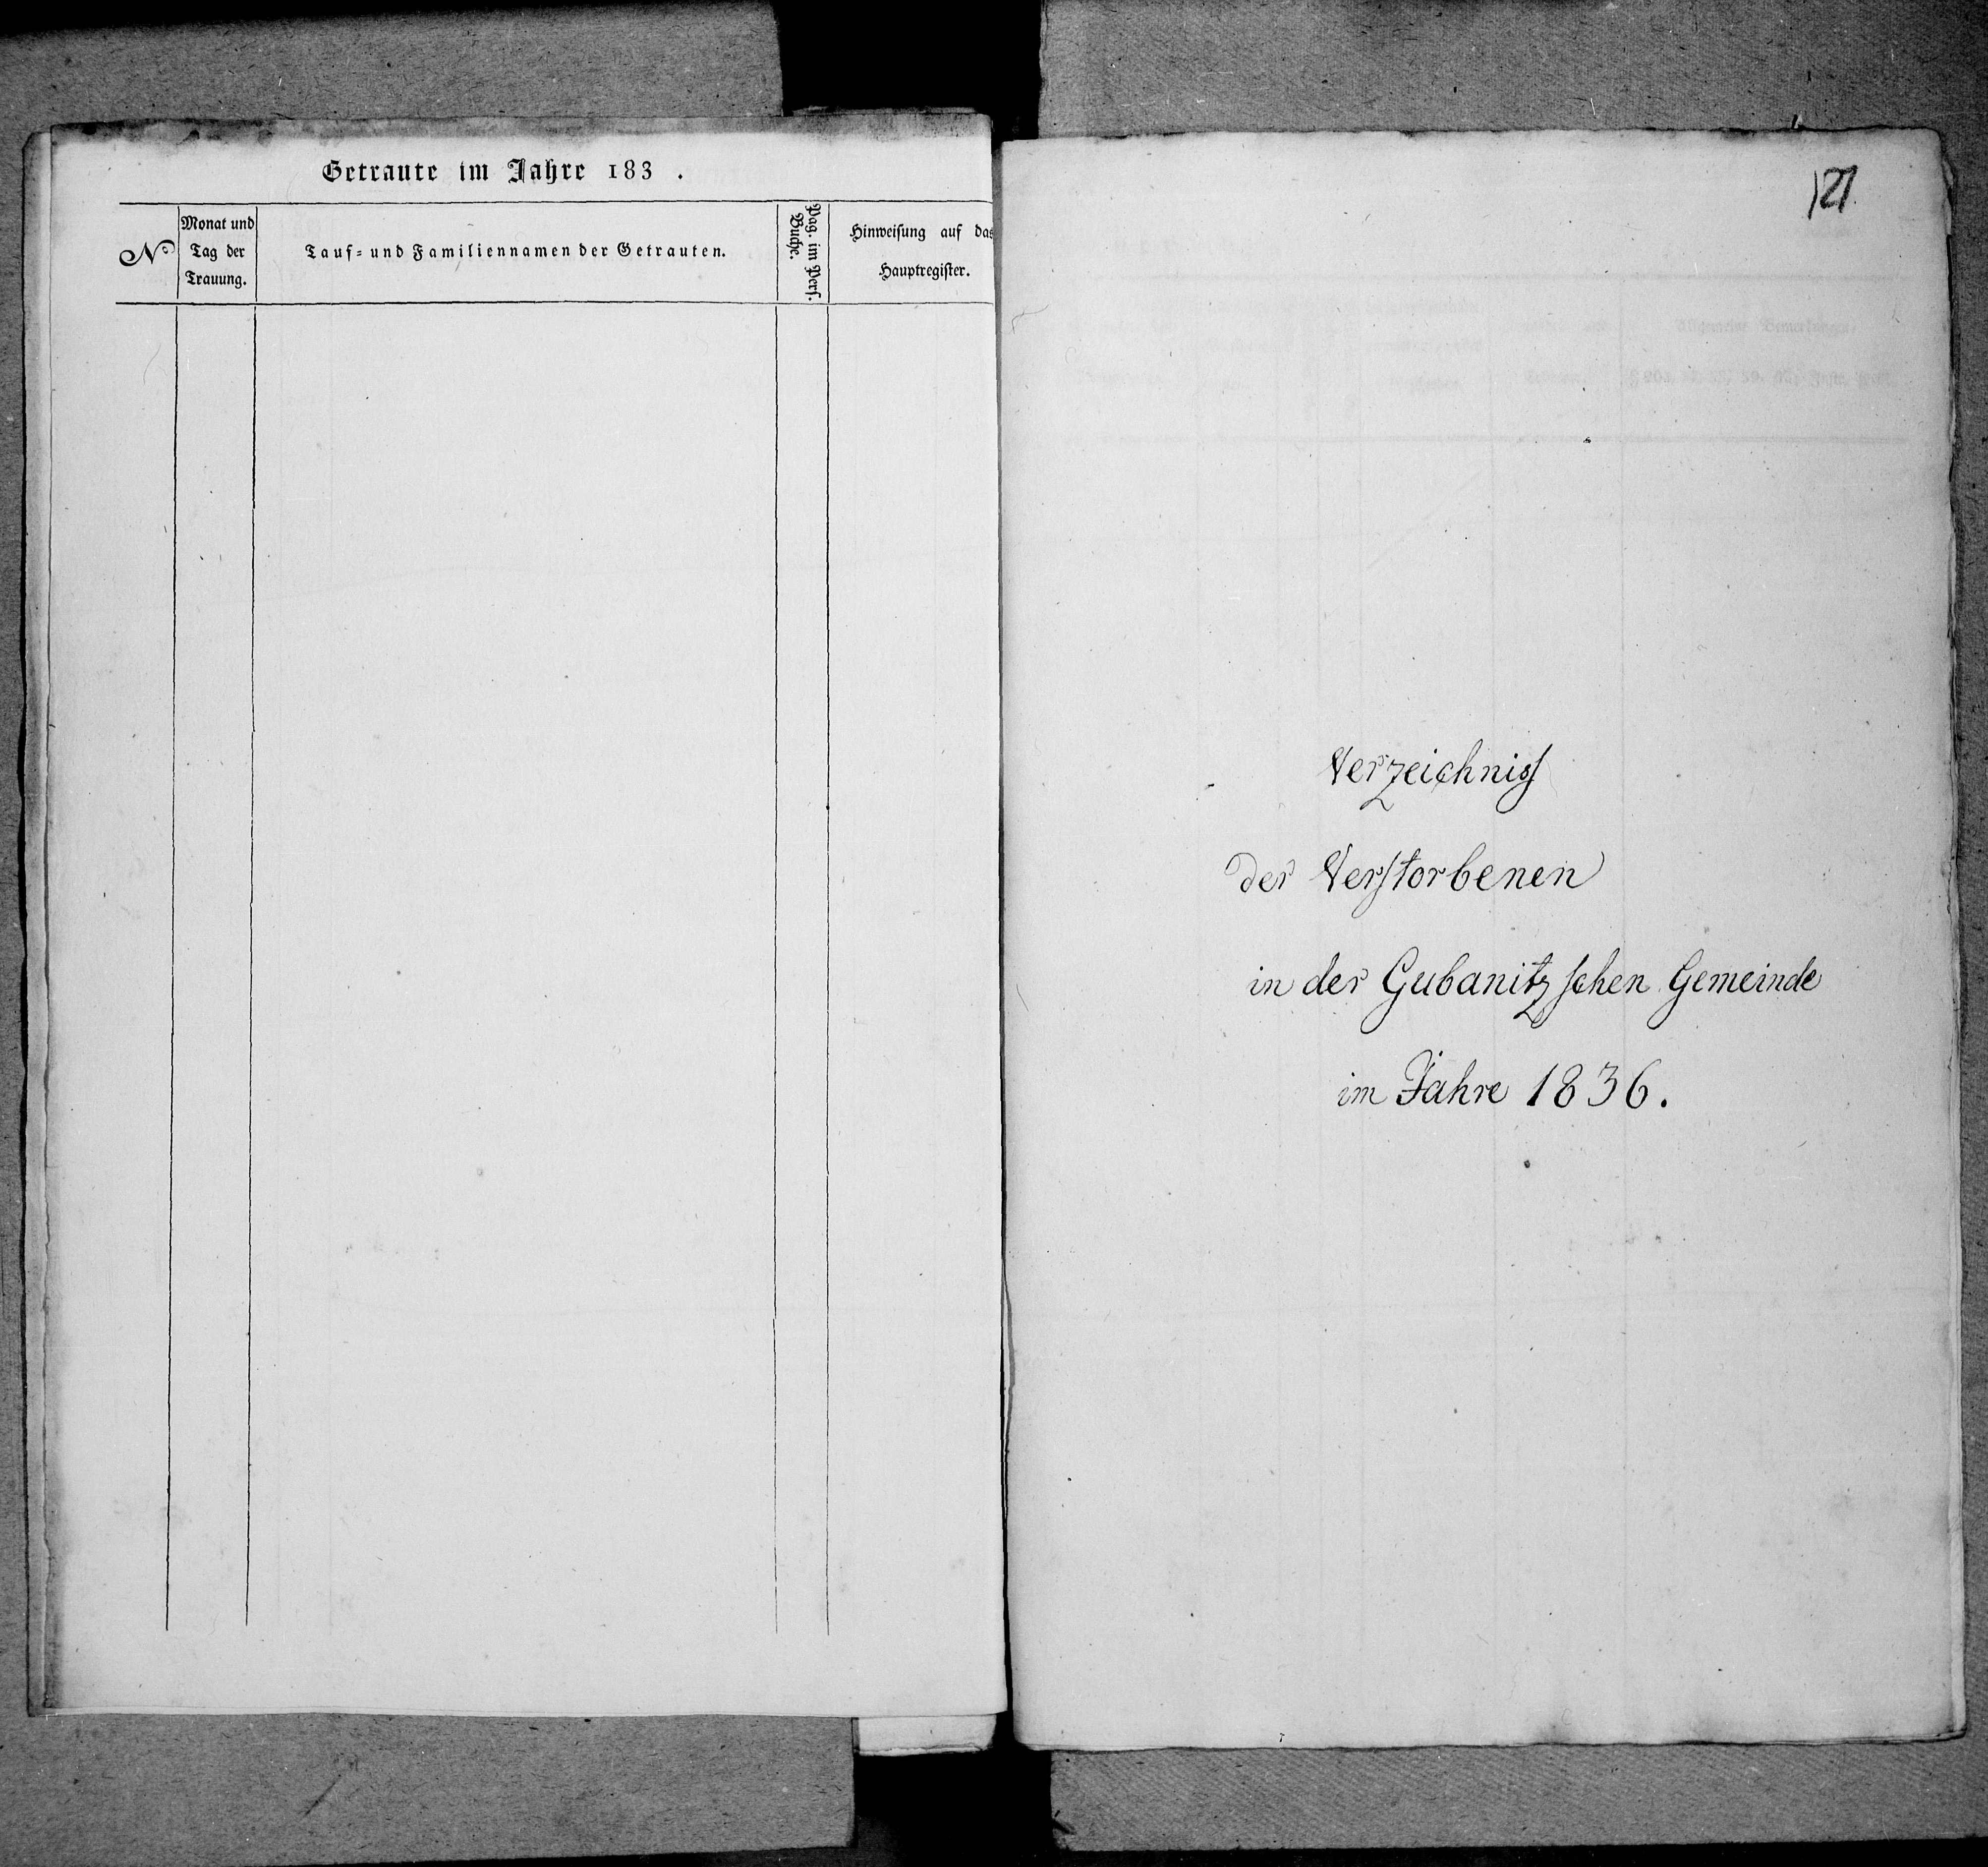 Getraute im Jahre 183 .
No
Monat und
Tag der
Trauung.
Tauf= und Familiennamen der Getrauten.
Pag. im Pers.
Buche.
Hinweisung auf das
Hauptregister.
121.
Verzeichniss
der Verstorbenen
in der Gubanitzschen Gemeinde
im Jahre 1836.